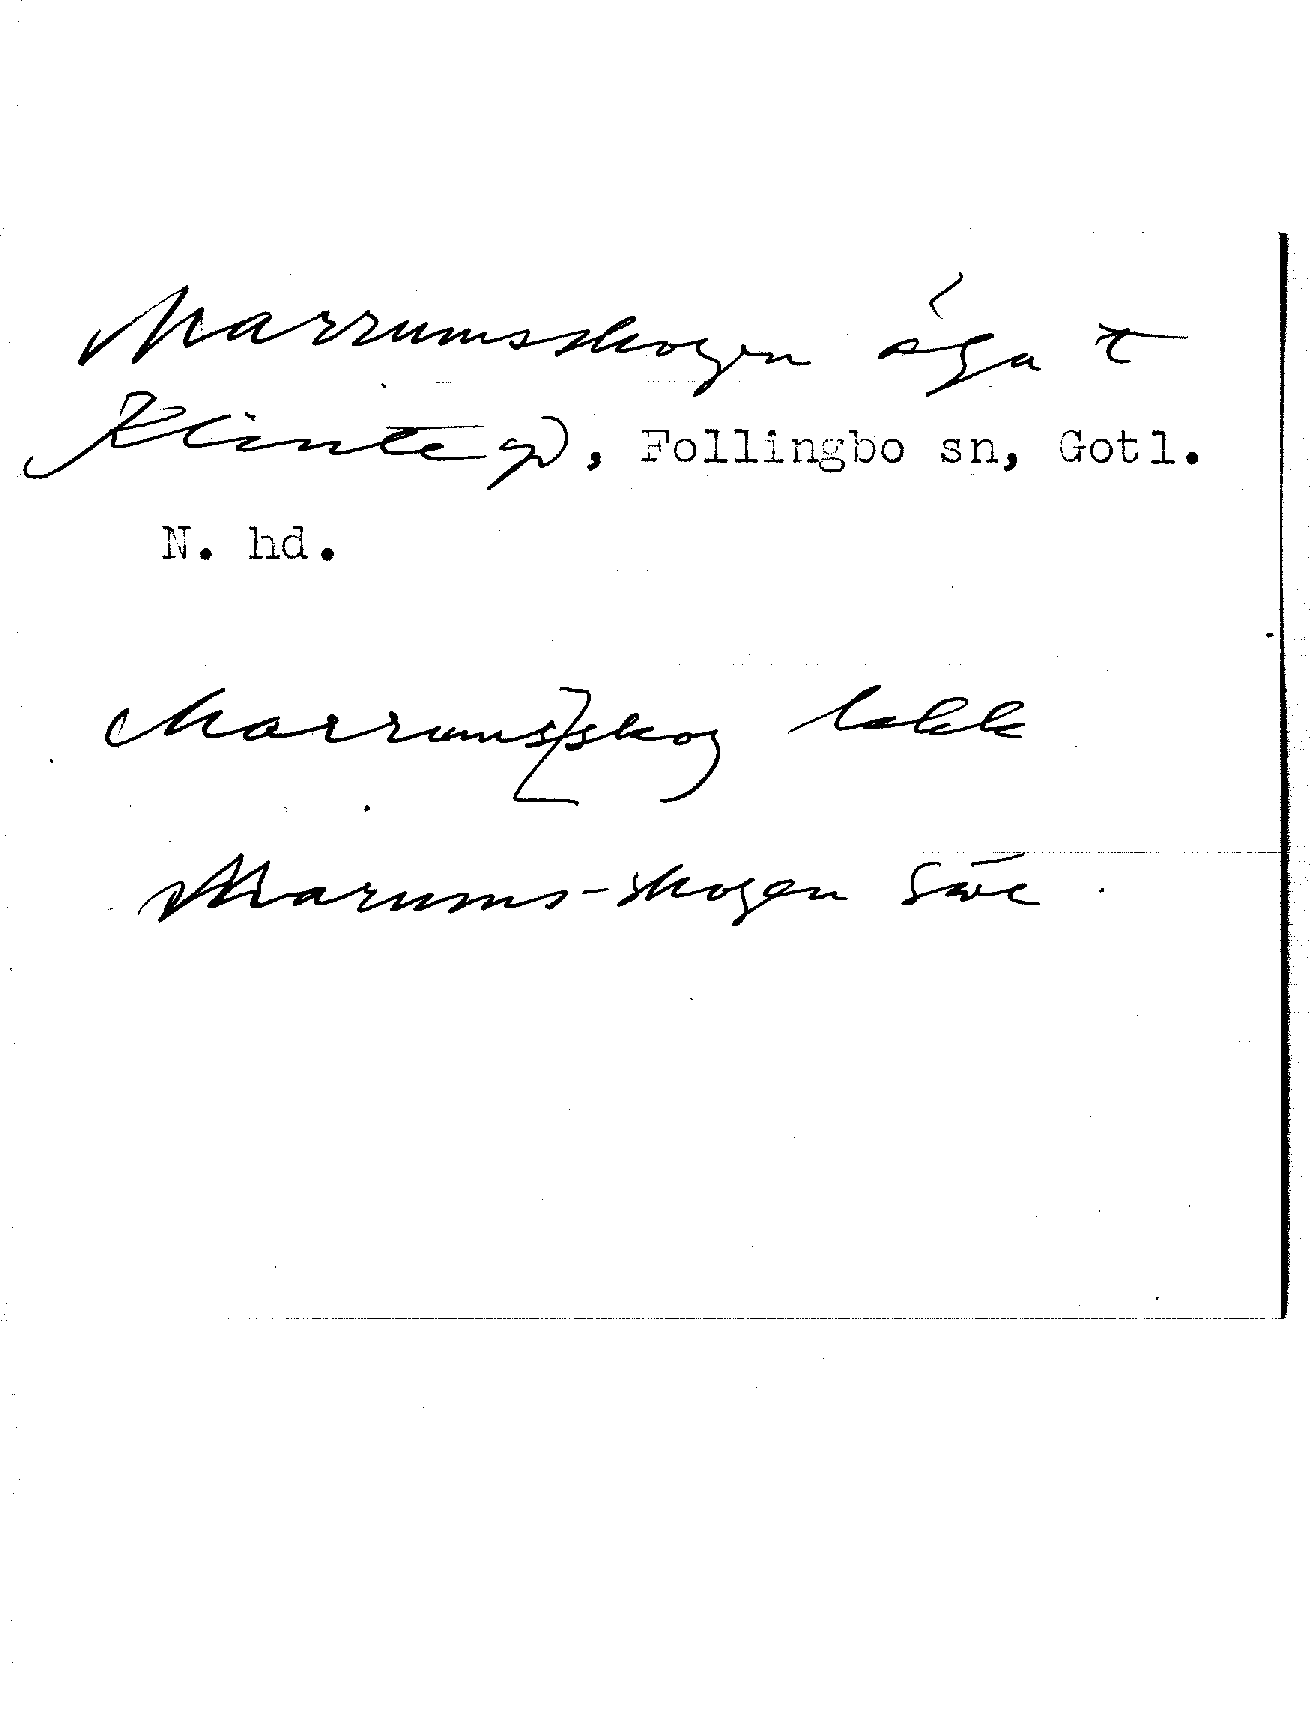 Marrumsskogen äga t
Klinte gd, Follingbo sn, Gotl.
N. hd.
Marrums[skog lakk
Marums-skogen Säve